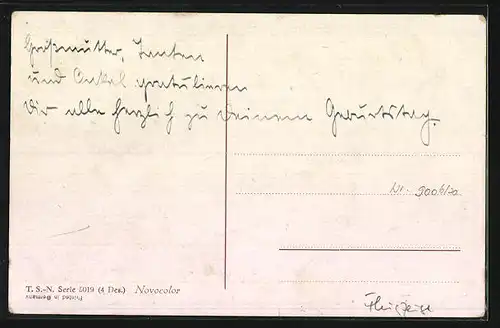 Großmutter, Tanten
und Onkel gratulieren
Dir alle herzlich zu Deinem Geburtstag.
T. S.-N. Serie 5019 (4 Des.) Novocolor
Printed in Germany